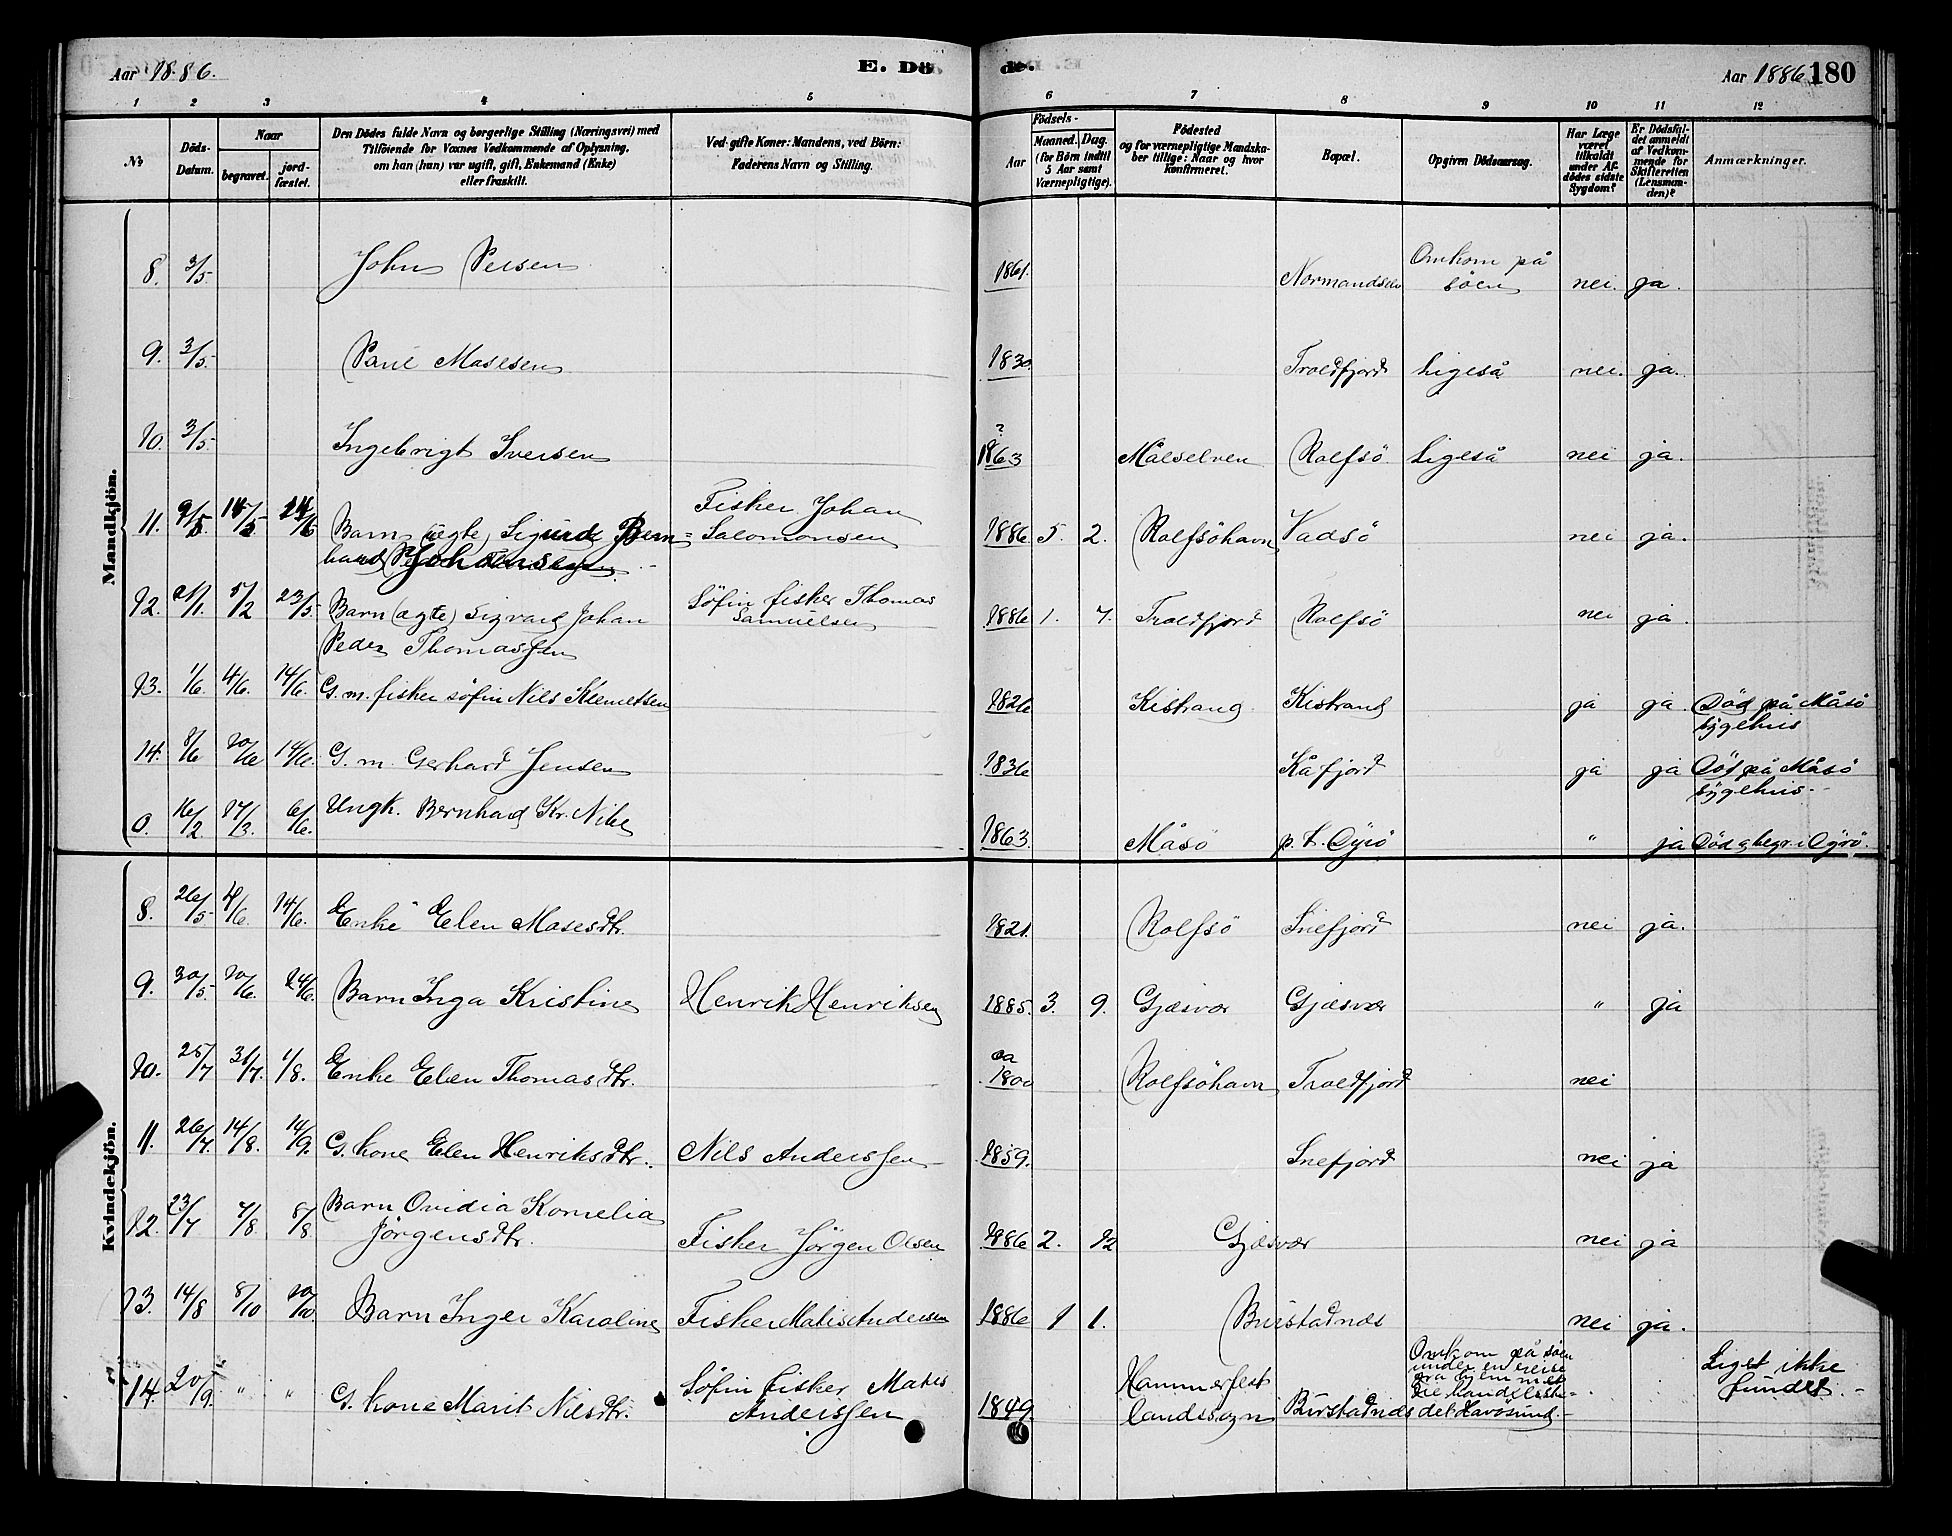 Aar 1886. E. Dö de. Aar 1886 180
1 2 3 4 5 6 7 8 9 10 11 12
No
Döds-Datum.
Naar
begravet. jordfæstet.
Den Dödes fulde Navn og borgerlige Stilling (Næringsvei) med
Tilföiende for Voxnes Vedkommende af Oplysning,
om han (hun) var ugift, gift, Enkemand (Enke)
eller fraskilt.
Ved gifte Koner: Mandens, ved Börn:
Faderens Navn og Stilling.
Födsels-
Aar
Maaned. Dag.
(for Börn indtil
5 Aar samt
Værnepligtige).
Födested
og for værnepligtige Mandskaber tillige: Naar og hvor
konfirmeret.
Bopæl.
Opgiven Dödsaarsag.
Har Læge været tilkaldt under Afdödes sidste Sygdom?
Er Dödsfaldet anmeldt af Vedkommende for Skifteretten (Lensmanden)?
Anmærkninger.
Mandkjön.
8. 3/5. John Persen 1861. Normandsetv Omkom på söen nei. ja.
9. 3/5. Paul Masesen 1830. Troldfjord Ligeså nei. ja.
10. 3/5. Ingebrigt Iversen ? 1863 Målselven Rolfsö Ligeså nei ja.
11. 9/5. 15/5 24/6 Barn (ægte) Sigurd Bernhard Johansen Fisker Johan Salomonsen 1886 5. 2. Rolfsöhavn Vadsö nei ja.
12. 21/1. 5/2 23/5. Barn (ægte) Sigvard Johan Peder Thomassen Söfin fisker Thomas Samuelsen 1886 1. 7. Troldfjord Rolfsö nei ja.
13. 1/6. 4/6. 14/6. G. m. fisker söfin Nils Klemetsen 1826 Kistrand Kistrand ja ja. Död på Måsö sygehus
14. 8/6 10/6 14/6. G. m. Gerhard Jensen 1836 Kåfjord ja ja Död på Måsö sygehus.
0. 16/2. 17/3. 6/6. Ungk. Bernhard Kr. Nils 1863 Måsö p. t. Dyrö " ja Död & begr. i Dyrö.
Kvindekjön.
8. 26/5 4/6. 14/6. Enke Elen Masesdtr. 1821. Rolfsö Snefjord nei ja.
9. 30/5. 10/6. 14/6. Barn Inga Kristine Henrik Henriksen 1885. 3. 9. Gjæsvær Gjæsvær " ja
10. 25/7 31/7. 1/8. Enke Elen Thomasdtr. ca 1800 Rolfsöhavn Troldfjord nei
11. 26/7. 14/8. 14/9. G. kone Elen Henriksdtr. Nils Anderssen 1859. Snefjord nei ja
12. 23/7 7/8. 8/8. Barn Ovidia Kornelia Jörgensdtr. Fisker Jörgen Olsen 1886 2. 12 Gjæsvær nei ja
13. 14/8 8/10 10/10. Barn Inger Karoline Fisker Matis Andersen 1886 1 1. Burstadnes nei ja.
14. 20/9. " " G. kone Marit Nilsdtr. Söfin fisker Mates Anderssen 1849. Hammerfest landssogn Burstadnes Omkom på söen under en reise fra hjemmet til handelsstedet Havösund. Liget ikke fundet.